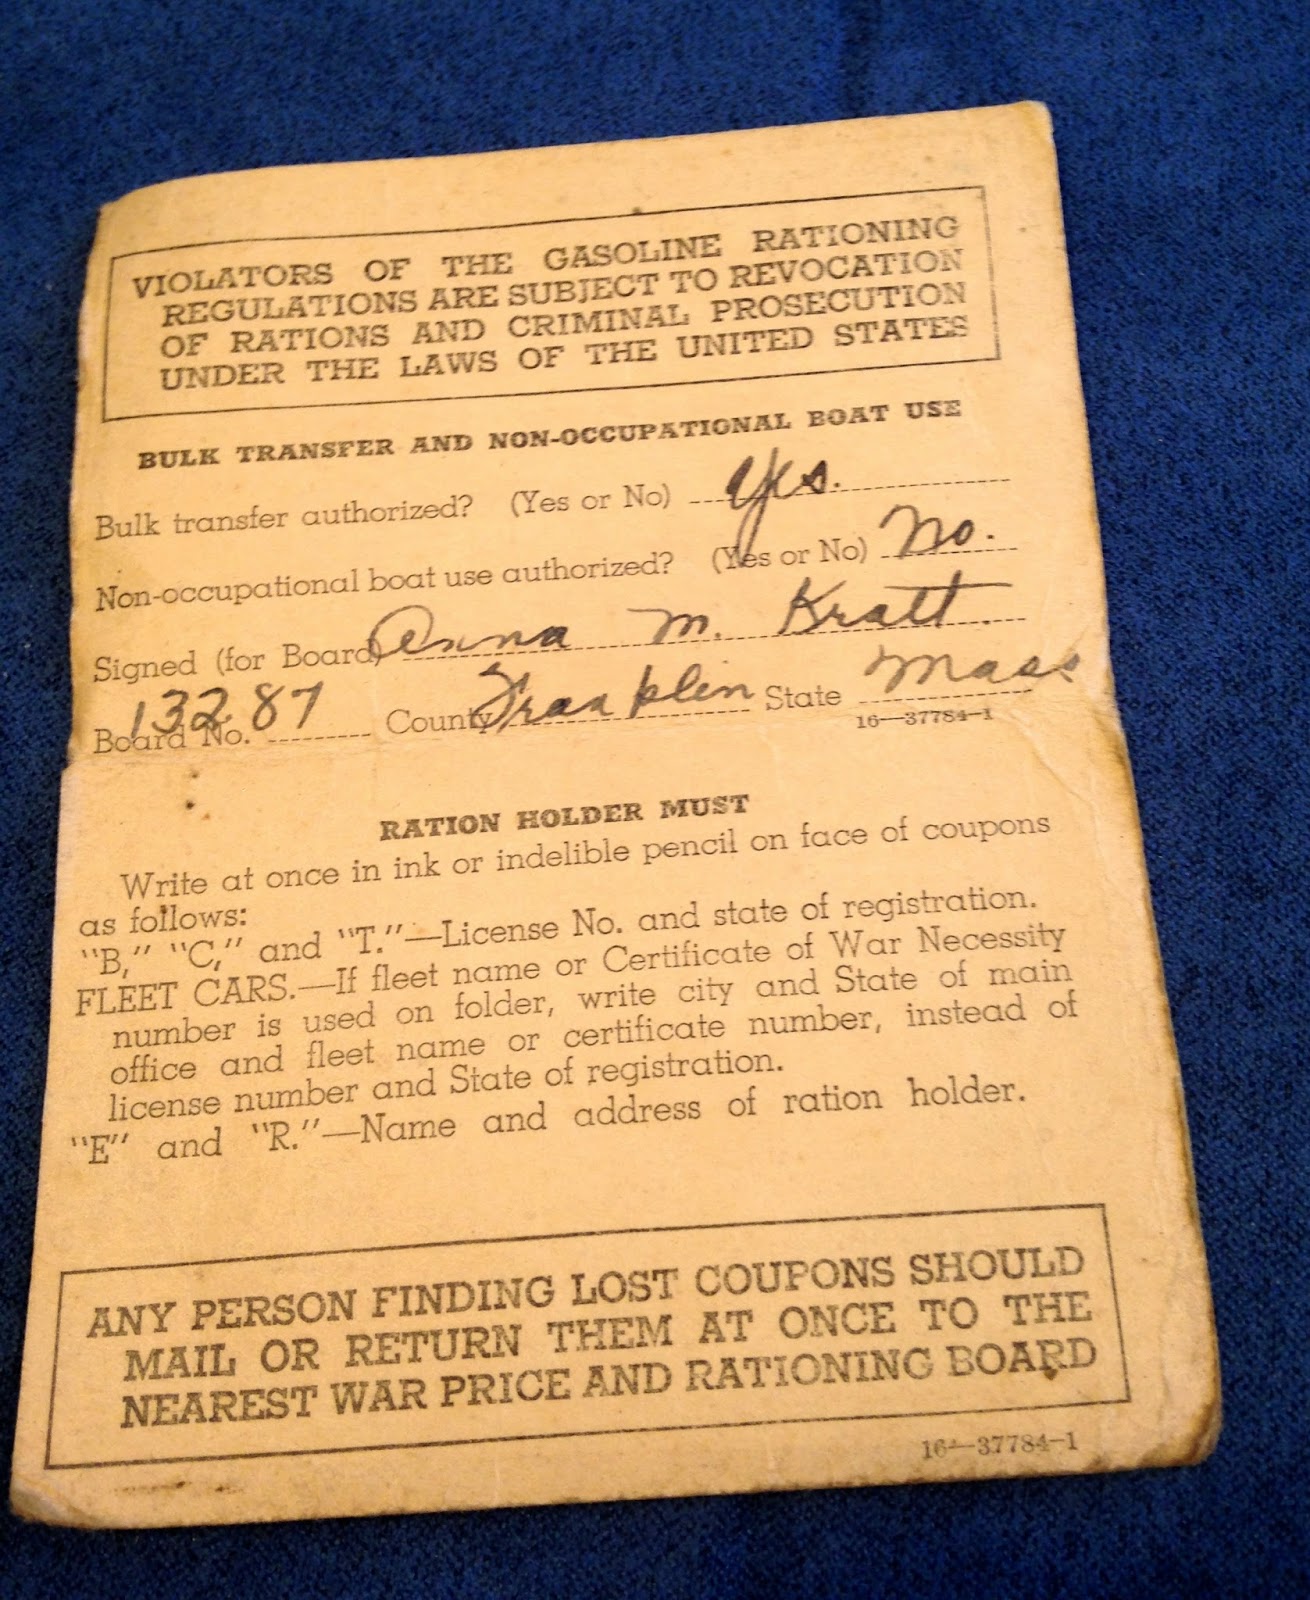 VIOLATORS OF THE GASOLINE RATIONING
REGULATIONS ARE SUBJECT TO REVOCATION
OF RATIONS AND CRIMINAL PROSECUTION
UNDER THE LAWS OF THE UNITED STATES
BULK TRANSFER AND NON-OCCUPATIONAL BOAT USE
Bulk transfer authorized? (Yes or No) Yes.
Non-occupational boat use authorized? (Yes or No) No.
Signed (for Board) Anna M. Kratt.
Board No. 13287 County Franklin State Mass
16—37784-1
RATION HOLDER MUST
Write at once in ink or indelible pencil on face of coupons
as follows:
"B," "C," and "T."—License No. and state of registration.
FLEET CARS.—If fleet name or Certificate of War Necessity
number is used on folder, write city and State of main
office and fleet name or certificate number, instead of
license number and State of registration.
"E" and "R."—Name and address of ration holder.
ANY PERSON FINDING LOST COUPONS SHOULD
MAIL OR RETURN THEM AT ONCE TO THE
NEAREST WAR PRICE AND RATIONING BOARD
16—37784-1